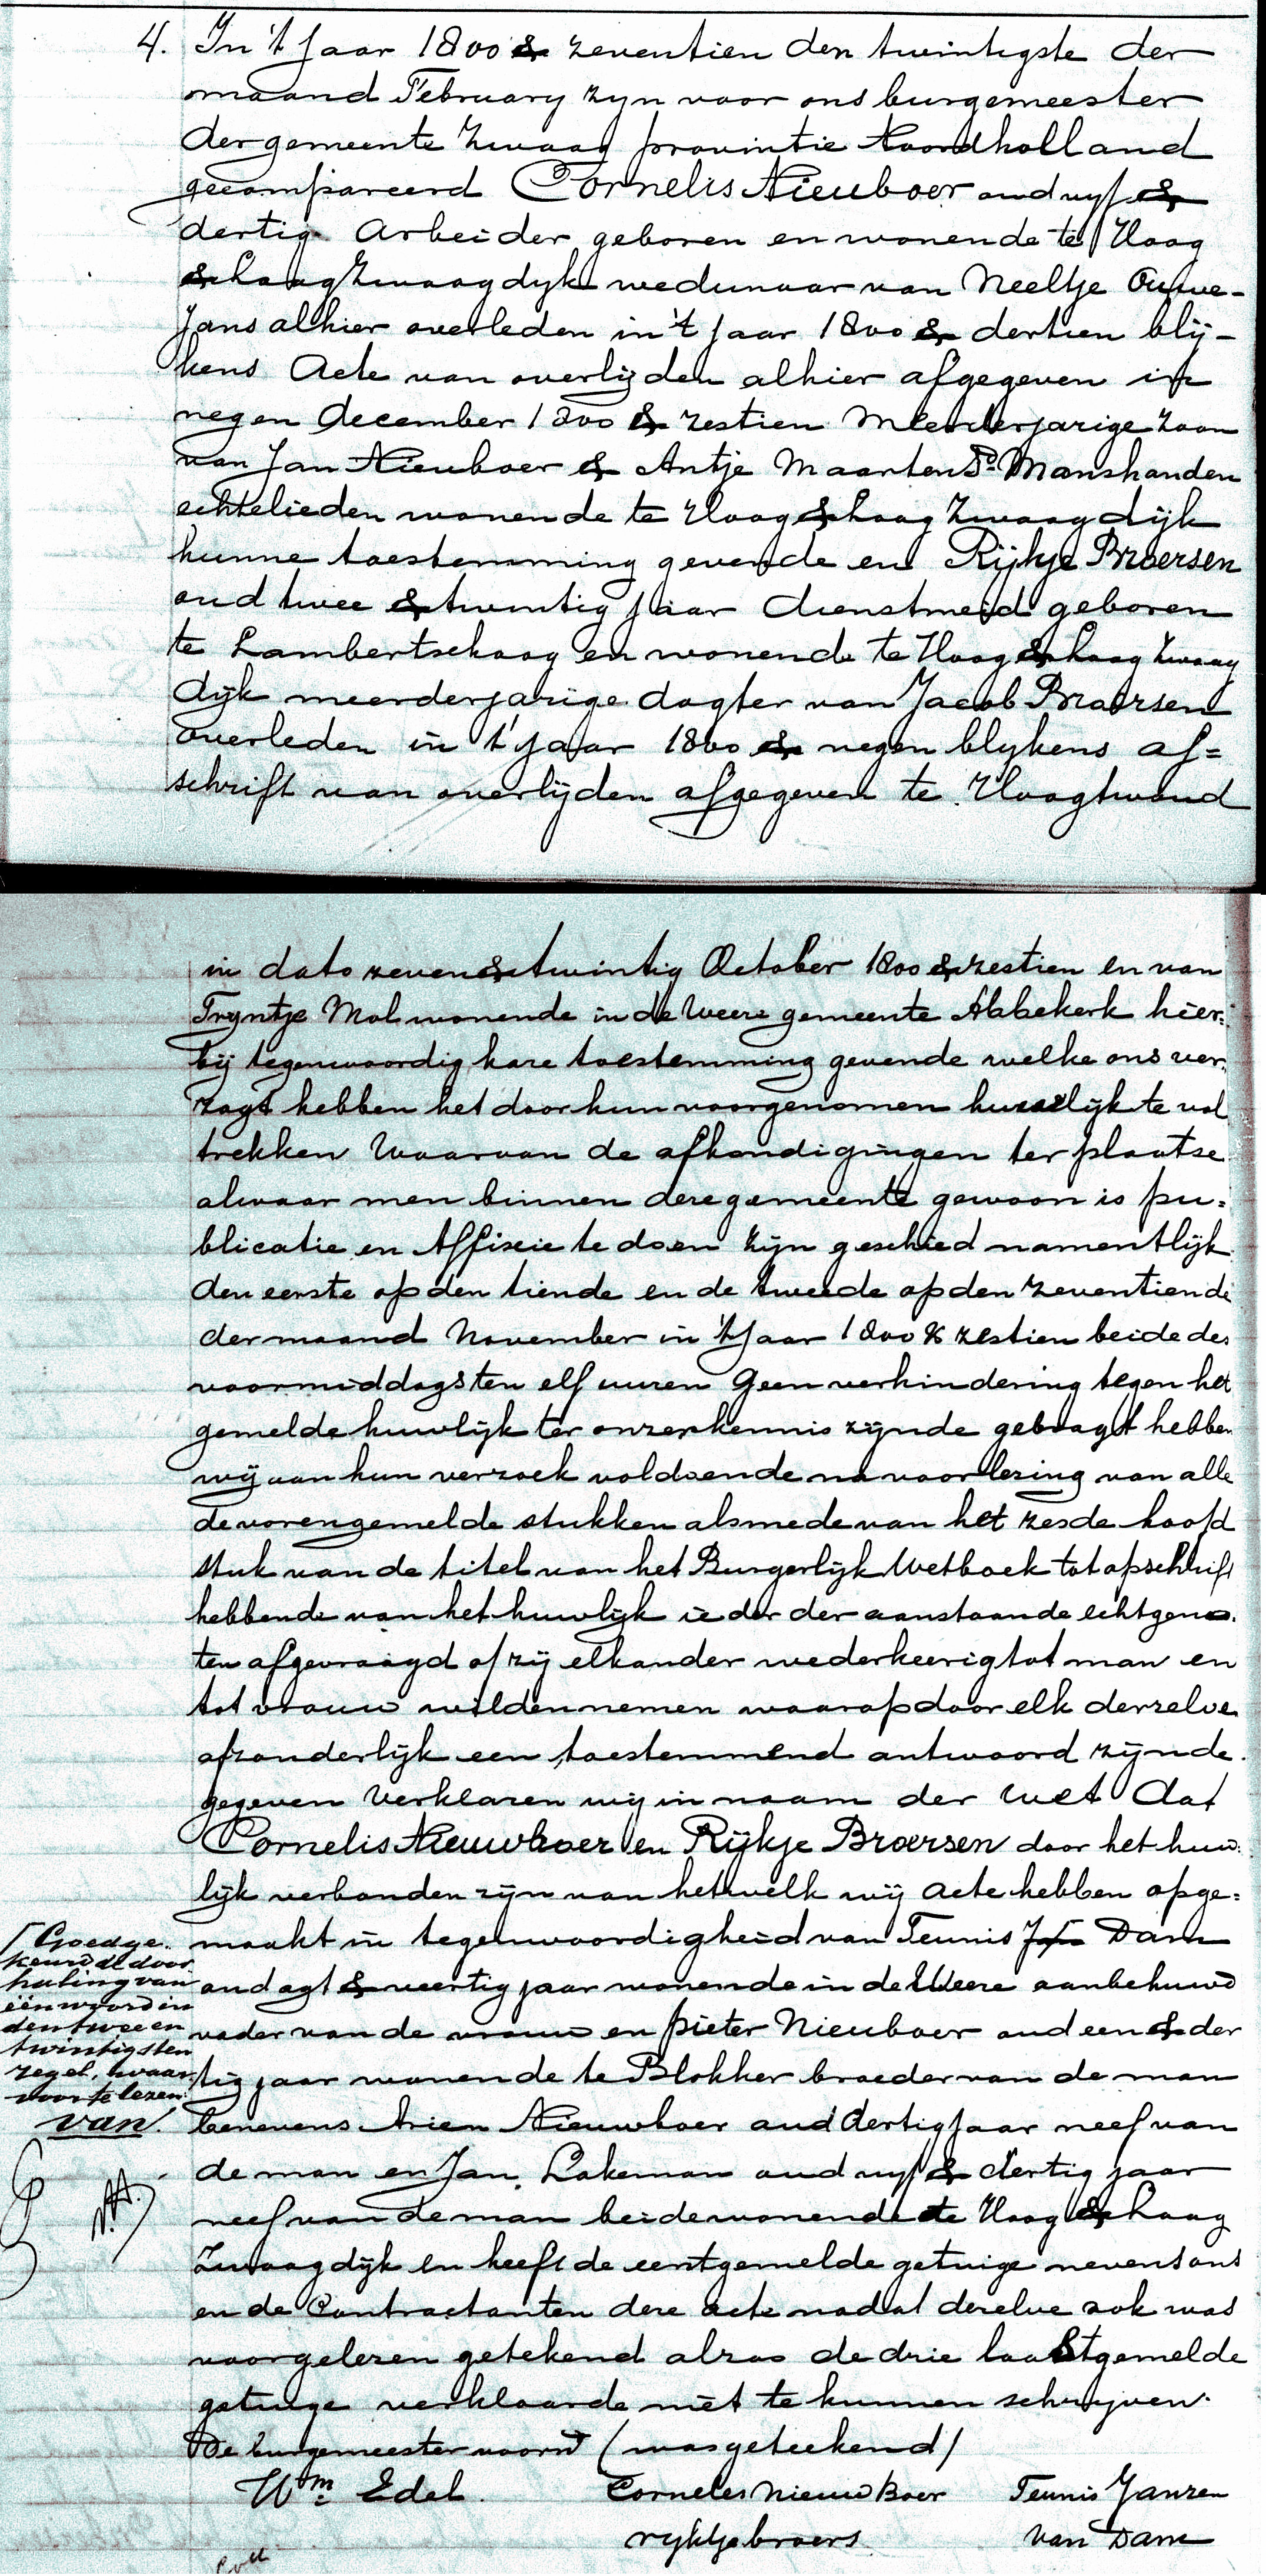 4. In 't Jaar 1800 & zeventien den twintigste der
maand February zyn voor ons burgemeester
der gemeente Zwaag provintie Noordholland
gecompareerd Cornelis Nieuboer oud vyf &
dertig Arbeider geboren en wonende te Hoog
& haag Zwaagdyk weduwaar van Neeltje Ouwe-
Jans alhier overleden in 't jaar 1800 & dertien blij-
kens Acte van overlijden alhier afgegeven in
negen december 1800 & zestien Meerderjarige Zoon
van Jan Nieuboer & Antje Maartens Ds Manshanden
echtelieden wonende te Hoog & haag Zwaagdijk
hunne toestemming gevende en Rijkje Broersen
oud twee & twintig jaar dienstmeid geboren
te Lambertschaag en wonende te Hoog & haag Zwaag
dijk meerderjarige dogter van Jacob Broersen
overleden in 't jaar 1800 & negen blykens af=
schrift van overlijden afgegeven te Hoogtwoud
in dato zeven & twintig October 1800 & zestien en van
Tryntje Mol wonende in de Weere gemeente Abbekerk hier=
bij tegenwoordig hare toestemming gevende welke ons ver=
zogt hebben het door hun voorgenomen huwelijk te vol
trekken Waarvan de afkondigingen ter plaatse
alwaar men binnen dere gemeente gewoon is pu=
blicatie en Affixie te doen zijn geschied namentlijk
den eerste op den tiende en de tweede op den zeventiende
der maand November in 't Jaar 1800 & zestien beide des
voormiddags ten elf uuren Geen verhindering tegen het
gemelde huwlijk ter onzer kennis zijnde gebragt hebben
wij aan hun verzoek voldoende na voorlezing van alle
de vorengemelde stukken alsmede van het zesde hoofd
stuk van de titel van het Burgerlijk Wetboek tot opschrift
hebbende van het huwlijk ieder der aanstaande echtgeno=
ten afgevraagd of zij elkander wederkeerig tot man en
tot vrouw wilden nemen waarop door elk derzelve
afzonderlijk een toestemmend antwoord zijnde
gegeven Verklaren wij in naam der Wet Dat
Cornelis Nieuwboer en Rijkje Broersen door het huw=
lijk verbonden zijn van hetwelk wij Acte hebben opge=
maakt in tegenwoordigheid van Teunis Jan Dam
oud agt & veertig jaar wonende in de Weere aanbehuwd
vader van de vrouw en pieter Nieuboer oud een & der
tig jaar wonende te Blokker broeder van de man
benevens Arien Nieuwboer oud dertig jaar neef van
de man en Jan Lakeman oud vyf & dertig jaar
neef van de man beide wonende te Hoog & haag
Zwaagdijk en heeft de eerstgemelde getuige nevens ons
en de Contractanten dere acte nadat derelve ook was
voorgelezen getekend alzoo de drie laatstgemelde
getuige verklaarde niet te kunnen schrijven.
[Goedge-
keurd de door
haling van
één woord in
den twee en
twintigsten
regel, waar
voor te lezen
van.
De burgemeester voornd (was geteekend)
Wm Edel Corneles Nieuw Boer Teunis Janzen
ryktje broers van Dam